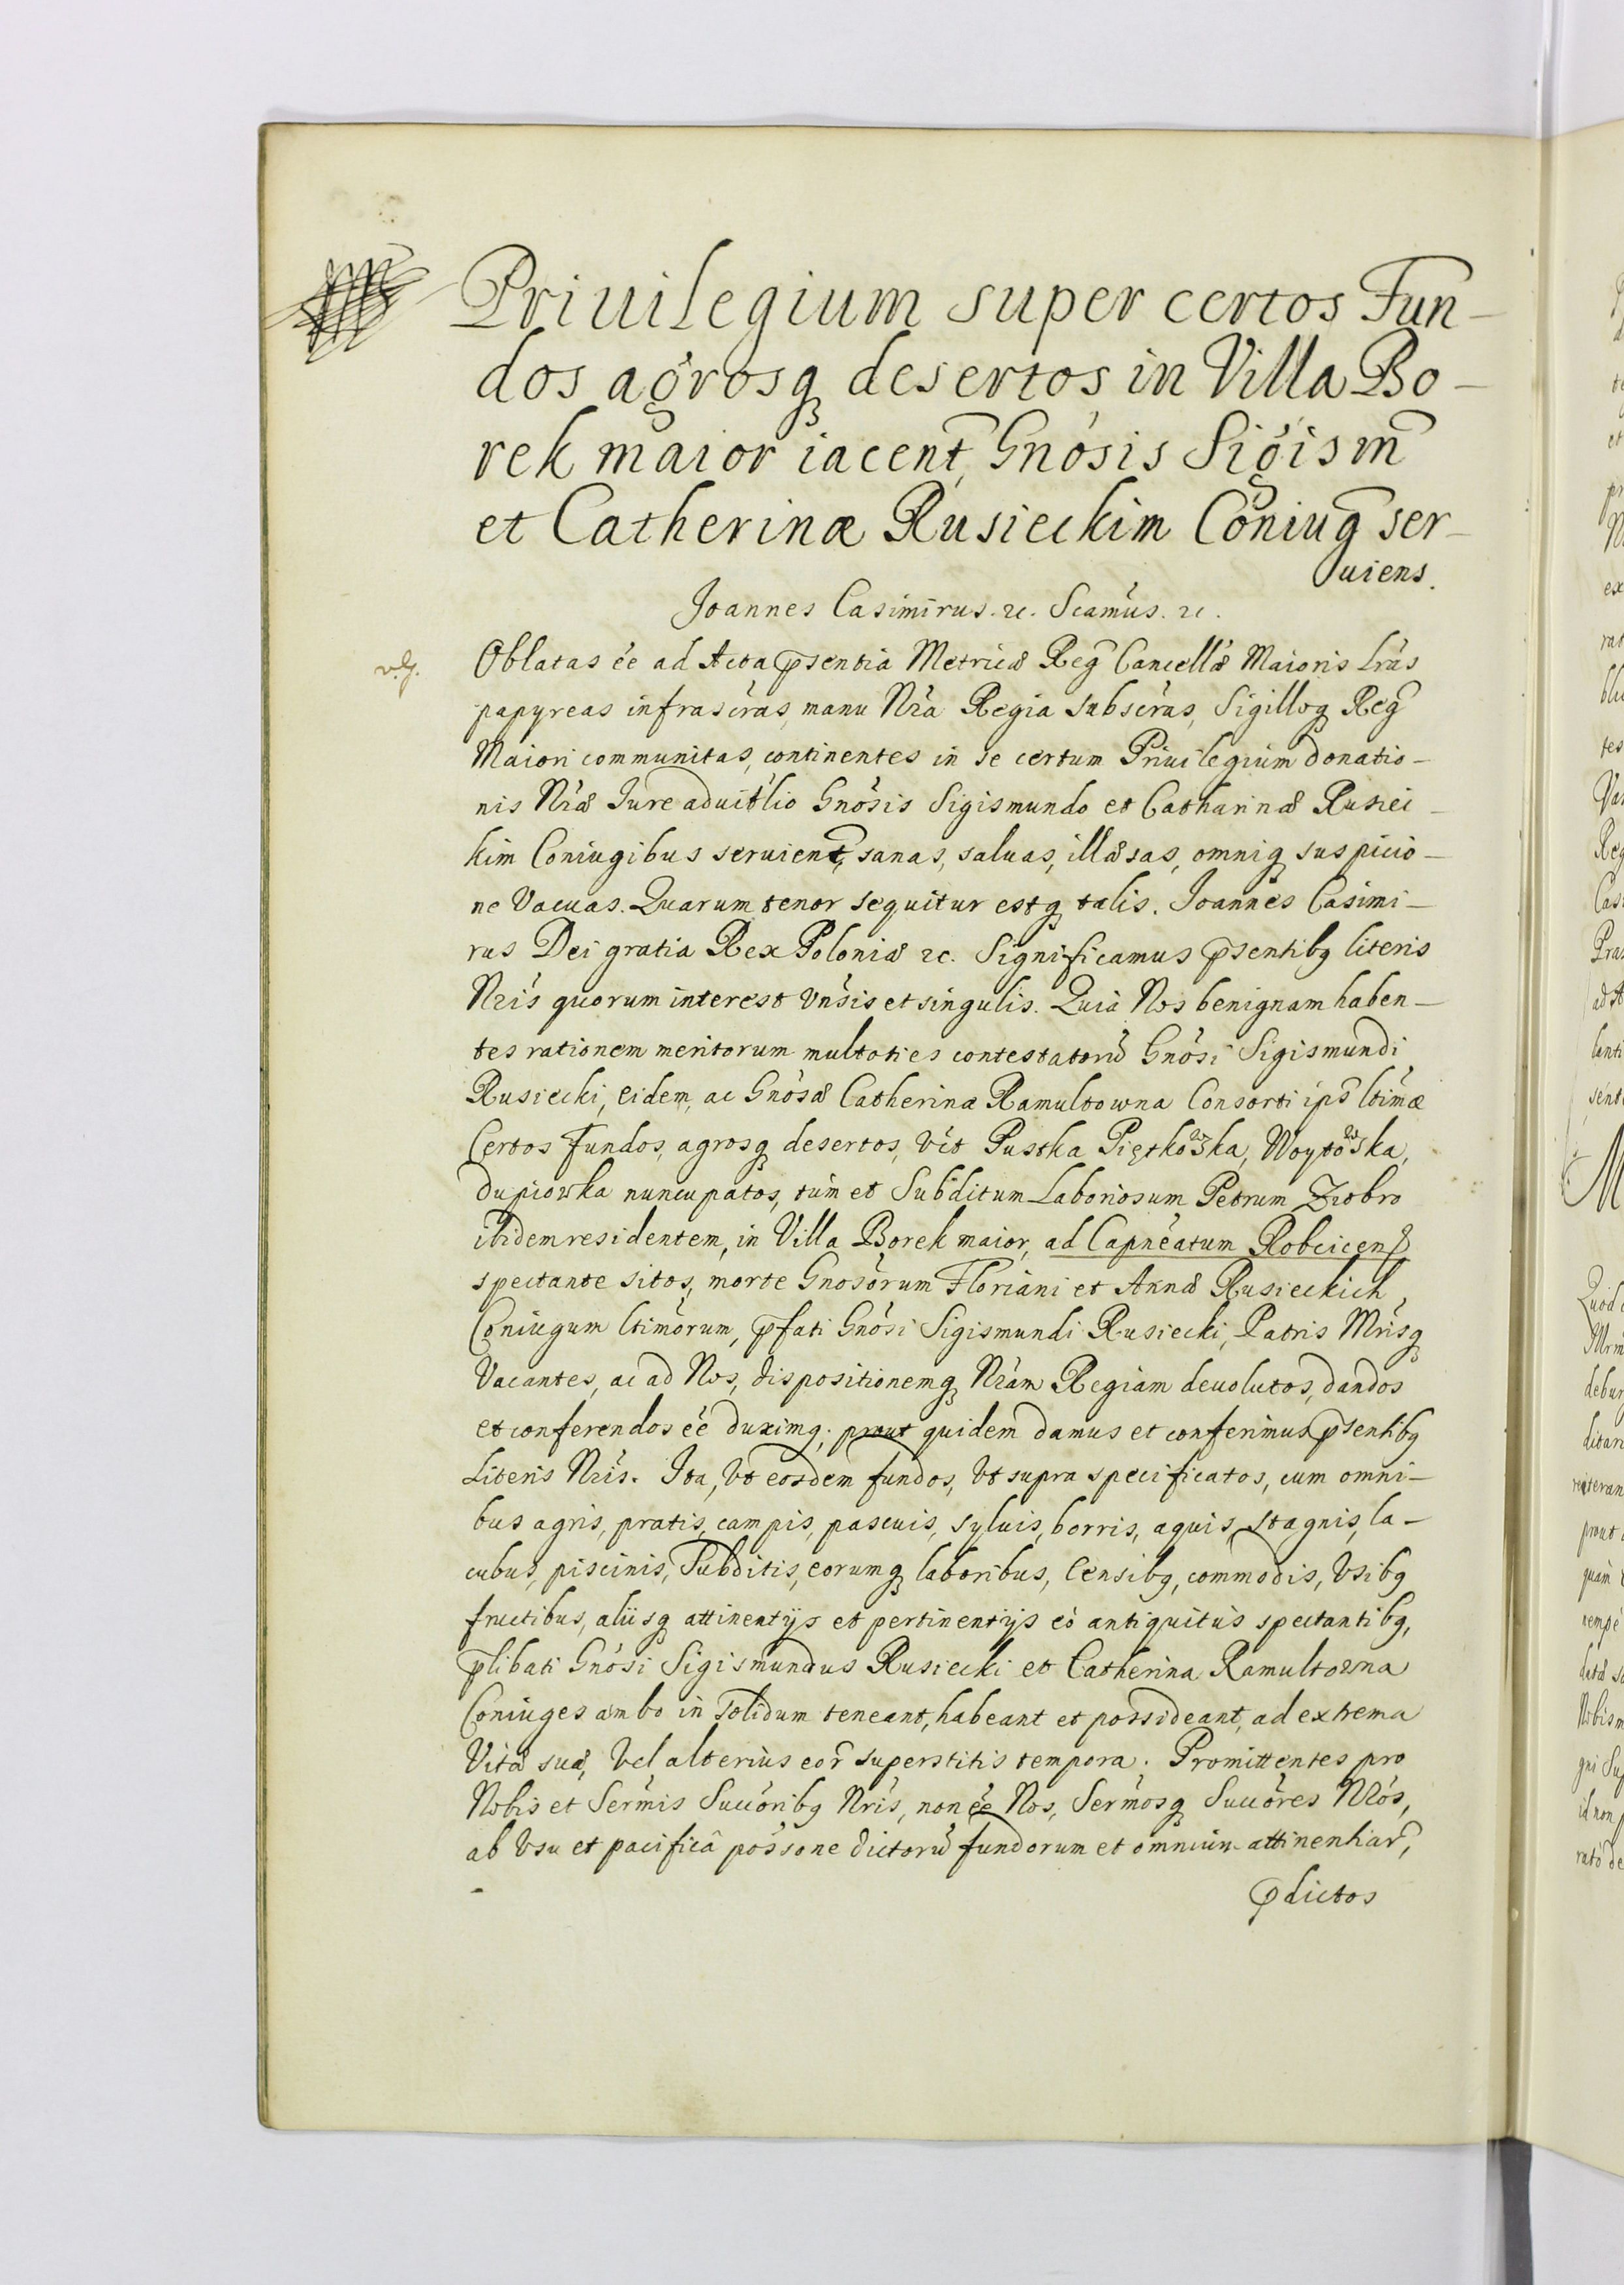 Priuilegium super certos Fun-
dos agrosq desertos in Villa Bo-
rek maior iacent, Gnosis Sigism
et Catherinæ Rusieckim Coniug ser-
uiens.
Joannes Casimirus. rc. Scamus. rc.
Oblatas ee ad Acta psentia Metricæ Reg Cancellæ Maioris Lras
papyreas infrascras, manu Nra Regia subscras, Sigilloq Reg
Maiori communitas, continentes in se certum Priuilegium donatio-
nis Nræ Jure aduitlio Gnosis Sigismundo et Catharinæ Rusiec-
kim Coniugibus seruient, sanas, saluas, illæsas, omniq suspicio-
ne Vacuas. Quarum tenor sequitur estq talis. Joannes Casimi-
rus Dei gratia Rex Poloniæ rc. Significamus psentibq literis
Nris quorum interest Vnsis et singulis. Quia Nos benignam haben-
tes rationem meritorum multoties contestatorũ Gnosi Sigismundi
Rusiecki, eidem, ac Gnosæ Catherinæ Ramultowna Consorti ips ltimæ
Certos fundos, agrosq desertos, vct Pustka Piętkowska, Woytowska,
dupiowka nuncupatos, tum et Subditum Laboriosum Petrum Ziobro
ibidem residentem, in Villa Borek maior, ad Capneatum Robcicens
spectante sitos, morte Gnosorum Floriani et Annæ Rusieckich
Coniugum ltimorum, pfati Gnosi Sigismundi Rusiecki, Patris Mrisq
Vacantes, ac ad Nos, dispositionemq Nram Regiam deuolutos, dandos
et conferendos ee duximq; prout quidem damus et conferimus psentibq
Literis Nris. Ita, Vt eosdem fundos, Vt supra specificatos, cum omni-
bus agris, pratis, campis, pascuis, syluis, borris, aquis, stagnis, la-
cubus, piscinis, Subditis, eorumq laboribus, Censibq, commodis, Vsibq
fructibus, aliisq attinentijs et pertinentijs eo antiquitus spectantibq,
plibati Gnosi Sigismundus Rusiecki et Catherina Ramultowna
Coniuges ambo in solidum teneant, habeant et possideant, ad extrema
Vitæ suæ, Vel alterius eor superstitis tempora. Promittentes pro
Nobis et Sermis Succoribq Nris, non ee Nos, Sermosq Succores Nros,
ab Vsu et pacificâ possone dictorũ fundorum et omnium attinentiar,
pdictos